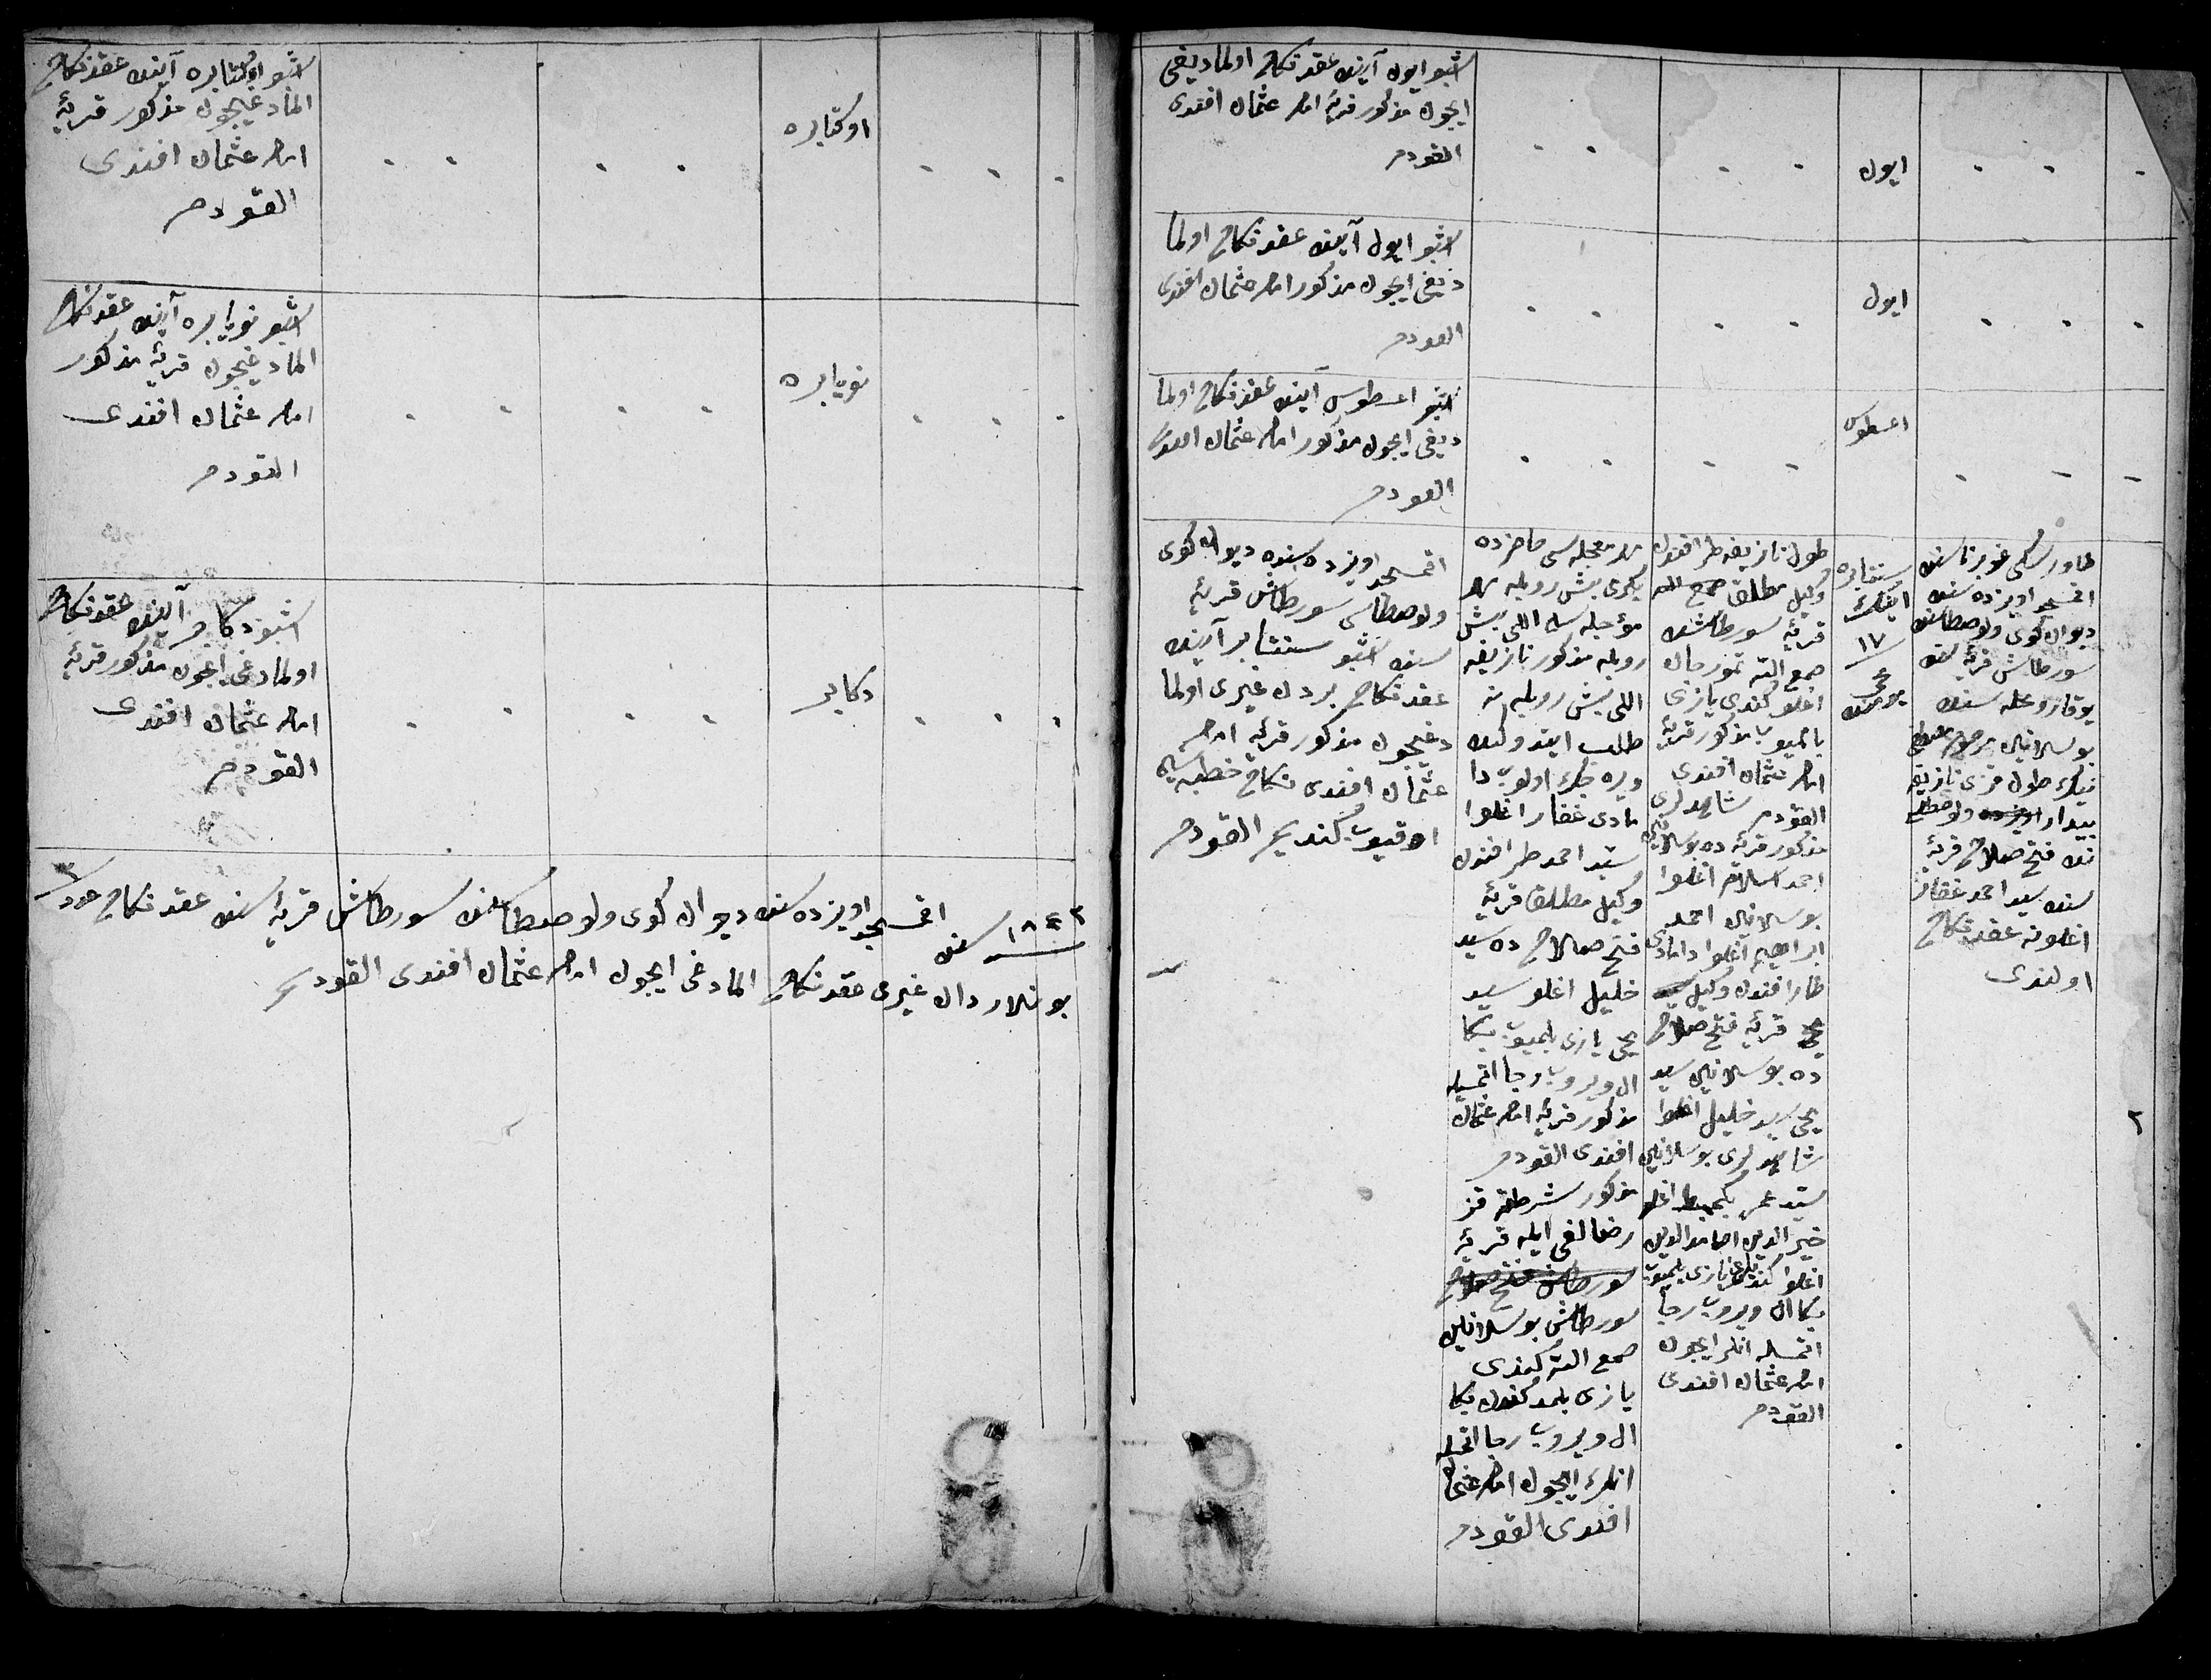 اشبو ایون آینده عقد نکاح اولمادیغی
ایچون مذکور قریهٔ امام عثمان افندی
القودم
ایون
اشبو ایول آینده عقد نکاح اولما
دیغی ایچون مذکور امام عثمان افندی
القودم
ایول
اشبو اغسطوس آینده عقد نکاح اولما
دیغی ایچون مذکور امام عثمان
القودم
اغسطوس
۲
طاور سکی غوبرناسنده
اقمسجد اویزده سنده
دیوان کوی ولوصطاسنده
سورطاش قریه سنده
یوقارو محله سنده
بوسلانین مرحوم
نیک طول قزی نازیفه
ولوصط
نده فتح صلاح قریه
سنده سید احمد غفار
اغلونه عقد نکاح
اولندی
سنتابره
ایفک
۱۷
طول نازیفه طرافندن
وکیل مطلق
قریه سورطاشنده
تمورجان
اغلو کندی یازی
بالمیوب مذکور قریه
امام عثمان افندی
القودم شاهدلری
مذکور قریه ده بوسلانین
احمد اسلام اغلوا
بوسلانین احمد
ابراهیم اغلوا
طارافندن وکیل
یحیی قریه فتح صلاح
ده بوسلانین سید
یحیی سید خلیل اغلوا
شاهدلری بوسلانین
سید عمر اغلو
خیرالدین
اغلوا یازی بلمیوب
بکا ال ویروب رجا
اتمسله انلر ایچون
امام عثمان افندی
القودم
مهر معجله سی حاضرده
یکرمی بش روبله مهر
مؤجله سی اللی بش
روبله مذکور نازیفه
اللی بش روبله نه
طلب ایندوکنده
ویره جک اولوب دا
مادی غفار اغلوا
سید احمد طرافندن
وکیل مطلق قریه
فتح صلاح ده سید
خلیل اغلو سید
یحیی یازی بلمیوب بکا
ال ویروب رجا اتمسله
مذکور قریه امام عثمان
افندی القودم
مذکور شرطنه قز
رضالغی ایله قریه
سورطاش فتح صلاح
سورطاش بوسلانین
کندی
یازی بلمد کندن بکا
ال ویروب رجا اتمسله
انک ایچون امام عثمان
افندی القودم
اقمسجد اویزده سنده دیوان کوی
ولوصطاسی سورطاش قریه
سنده اشبو سنتابر آینده
عقد نکاح بردن غیری اولما
دغیچون مذکور قریه امام
عثمان افندی نکاح خطبه سی
اوقیوب کندیم القودم
اشبو اوکتابره آینده عقد نکاح
المادغیچون مذکور قریهٔ
امام عثمان افندی
القودم
اوکتابره
اشبو نویابره آینده عقد نکاح
المادیغیچون قریهٔ مذکور
امام عثمان افندی
القودم
نویابره
اشبو دکابر آینده عقد نکاح
اولمادغی ایچون مذکور قریهٔ
امام عثمان افندی
القودم
دکابر
۱۸۴۳ سنه اقمسجد اویزده سنده دیوان کوی ولوصطاسنده سورطاش قریه سنده عقد نکاح عدد
بونلار دان غیری عقد نکاح المادغی ایچون امام عثمان افندی القودم